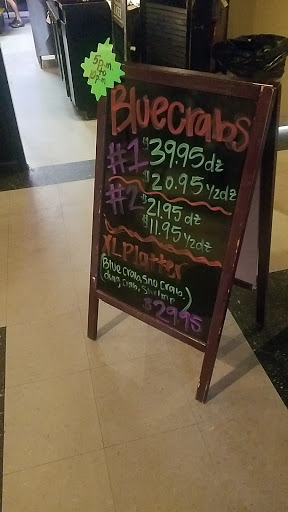 5p.m
to
10p.m
Bluecrabs
#1 $39.95 dz
$20.95 1/2dz
#2 $21.95 dz
$11.95 1/2dz
XL Platter
(Blue Crab, Sno Crab,
dung Crab, Shrimp)
$29.95